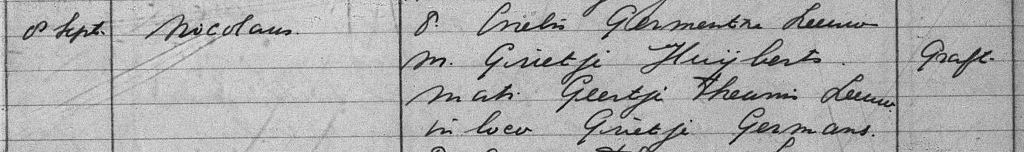 8 Sept. Nicolaus. P. Crelis Germentse Leeuw
m. Grietje Huijberts. Graft.
mat. Geertje Theunis Leeuw
in loco Grietje Germans.